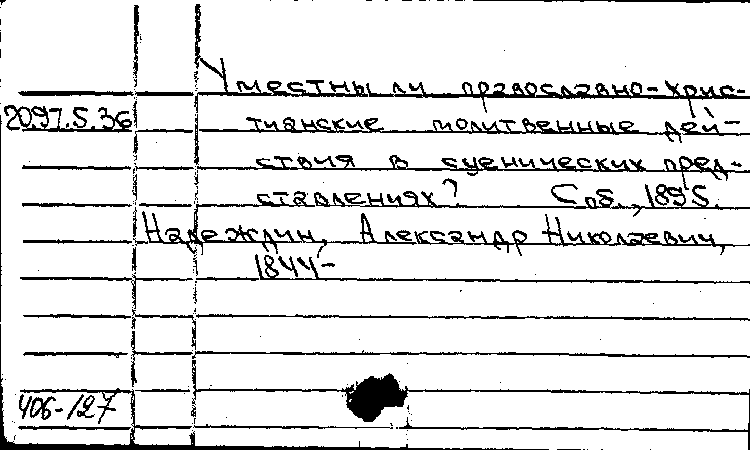 Уместны ли православно-хрис-
20.97.5.36 тианские молитвенные дей-
ствия в сценических пред-
ставлениях? Спб., 1895.
Надеждин, Александр Николаевич,
1844-
406-127